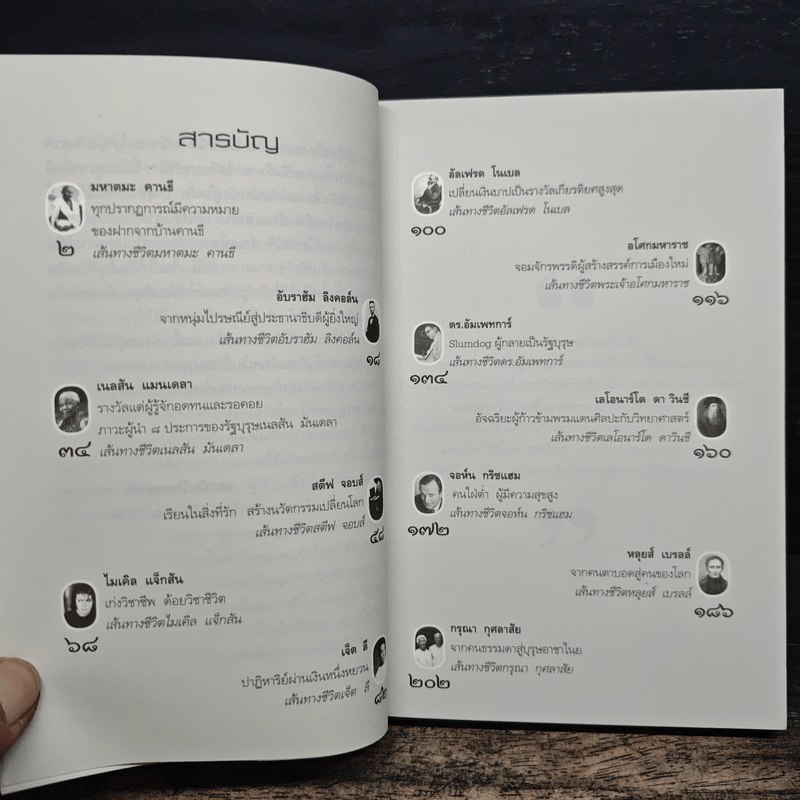 สารบัญ
มหาตมะ คานธี
ทุกปรากฏการณ์มีความหมาย
ของฝากจากบ้านคานธี
เส้นทางชีวิตมหาตมะ คานธี
๒
อับราฮัม ลิงคอล์น
จากหนุ่มไปรษณีย์สู่ประธานาธิบดีผู้ยิ่งใหญ่
เส้นทางชีวิตอับราฮัม ลิงคอล์น
๑๘
เนลสัน แมนเดลา
รางวัลแด่ผู้รู้จักอดทนและรอคอย
ภาวะผู้นำ ๘ ประการของรัฐบุรุษเนลสัน มันเดลา
เส้นทางชีวิตเนลสัน มันเดลา
๓๔
สตีฟ จอบส์
เรียนในสิ่งที่รัก สร้างนวัตกรรมเปลี่ยนโลก
เส้นทางชีวิตสตีฟ จอบส์
๕๘
ไมเคิล แจ็กสัน
เก่งวิชาชีพ ด้อยวิชาชีวิต
เส้นทางชีวิตไมเคิล แจ็กสัน
๖๘
เจ็ต ลี
ปาฏิหาริย์ผ่านเงินหนึ่งหยวน
เส้นทางชีวิตเจ็ต ลี
อัลเฟรด โนเบล
เปลี่ยนเงินบาปเป็นรางวัลเกียรติยศสูงสุด
เส้นทางชีวิตอัลเฟรด โนเบล
๑๐๐
อโศกมหาราช
จอมจักรพรรดิผู้สร้างสรรค์การเมืองใหม่
เส้นทางชีวิตพระเจ้าอโศกมหาราช
๑๑๖
ดร.อัมเพทการ์
Slumdog ผู้กลายเป็นรัฐบุรุษ
เส้นทางชีวิตดร.อัมเพทการ์
๑๓๔
เลโอนาร์โด ดา วินชี
อัจฉริยะผู้ก้าวข้ามพรมแดนศิลปะกับวิทยาศาสตร์
เส้นทางชีวิตเลโอนาร์โด ดาวินชี
๑๖๐
จอห์น กริชแฮม
คนใฝ่ต่ำ ผู้มีความสุขสูง
เส้นทางชีวิตจอห์น กริชแฮม
๑๗๒
หลุยส์ เบรลล์
จากคนตาบอดสู่คนของโลก
เส้นทางชีวิตหลุยส์ เบรลล์
๑๘๖
กรุณา กุศลาสัย
จากคนธรรมดาสู่บุรุษอาชาไนย
เส้นทางชีวิตกรุณา กุศลาสัย
๒๐๒